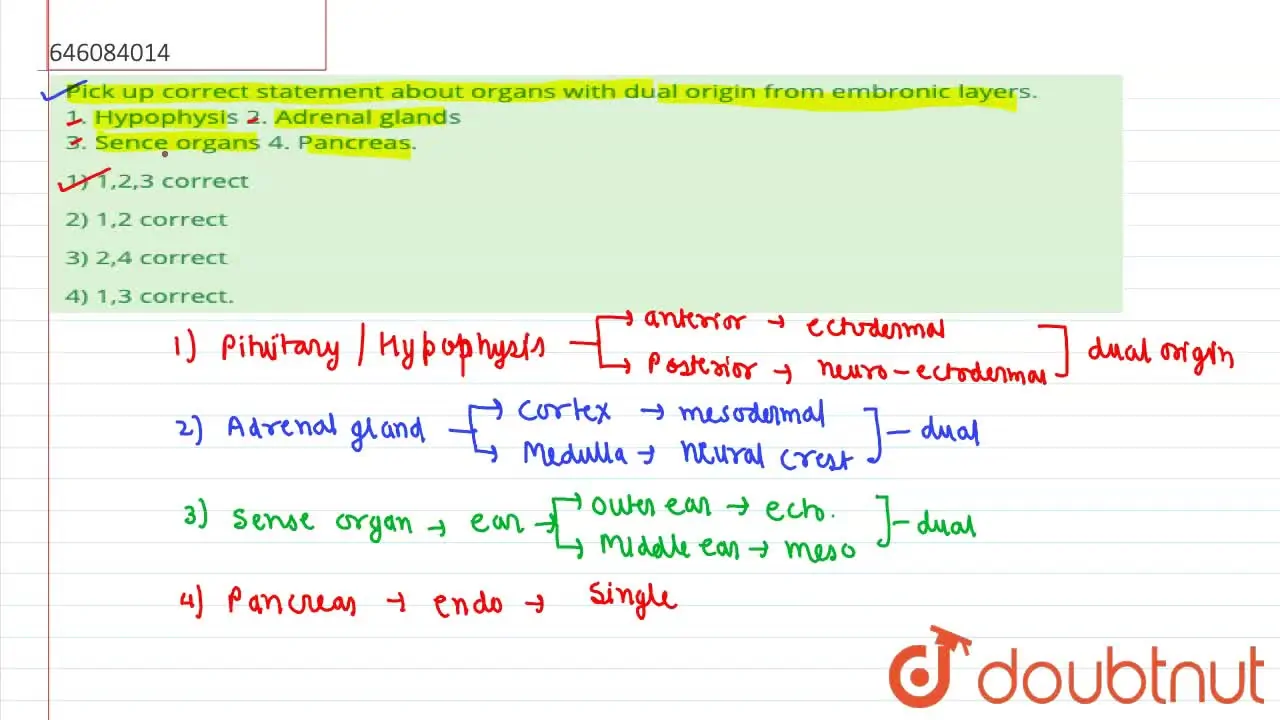 646084014
Pick up correct statement about organs with dual origin from embronic layers.
1. Hypophysis 2. Adrenal glands
3. Sence organs 4. Pancreas.
1) 1,2,3 correct
2) 1,2 correct
3) 2,4 correct
4) 1,3 correct.
1) Pituitary / Hypophysis → anterior → ectodermal
→ Posterior → neuro-ectodermal dual origin
2) Adrenal gland → cortex → mesodermal
→ Medulla → neural crest - dual
3) Sense organ → ear → outer ear → ecto.
→ Middle ear → meso - dual
4) Pancreas → endo → single
doubtnut